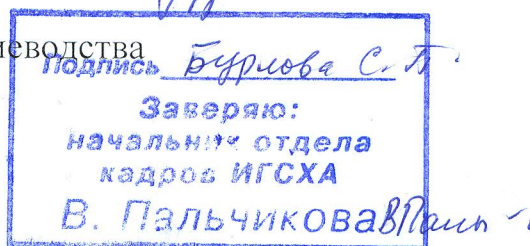 иеводства
Подпись Бурлова С. П
Заверяю:
начальник отдела
кадров ИГСХА
В. Пальчикова